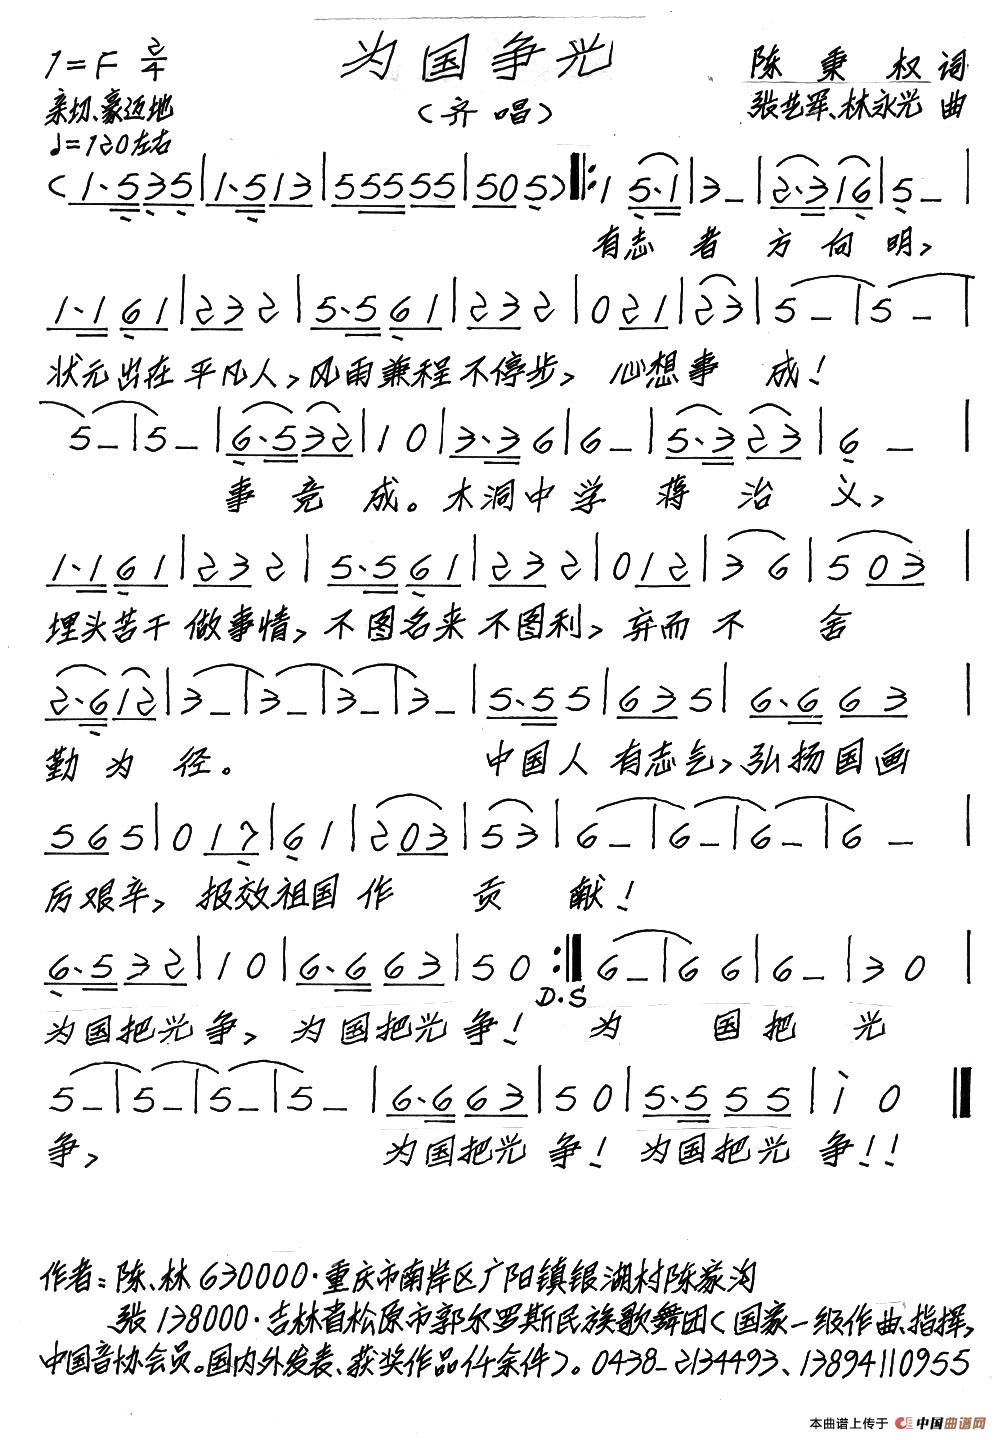 1=F 2/4 为国争光 陈秉权 词
亲切、豪迈地 （齐唱） 张艺军、林永光 曲
♩=120左右
(1·535|1·513|55555|505)‖:1 5·1|3－|2·316|5－|
有志者方向明，
1·161|232|5·561|232|021|23|5－|5－|
状元出在平凡人，风雨兼程不停步，心想事成！
5－|5－|6·532|10|3·36|6－|5·323|6－|
事竞成。木洞中学蒋治义，
1·161|232|5·561|232|012|36|503|
埋头苦干做事情，不图名来不图利，弃而不舍
2·612|3－|3－|3－|3－|5·55|635|6·663|
勤为径。中国人有志气，弘扬国画
565|017|61|203|53|6－|6－|6－|6－|
厉艰辛，报效祖国作贡献！
6·532|10|6·663|50:‖6－|66|6－|30|
D.S
为国把光争，为国把光争！为国把光
5－|5－|5－|5－|6·663|50|5·555|i0‖
争，为国把光争！为国把光争！！
作者：陈、林630000·重庆市南岸区广阳镇银湖村陈家沟
张138000·吉林省松原市郭尔罗斯民族歌舞团（国家一级作曲、指挥，
中国音协会员。国内外发表、获奖作品仟余件）。0438-2134493、13894110955
本曲谱上传于 中国曲谱网